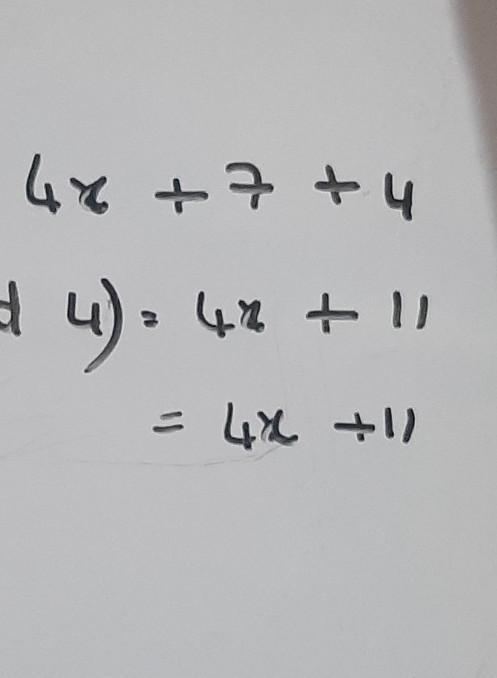 4x + 7 + 4
4) = 4x + 11
= 4x + 11